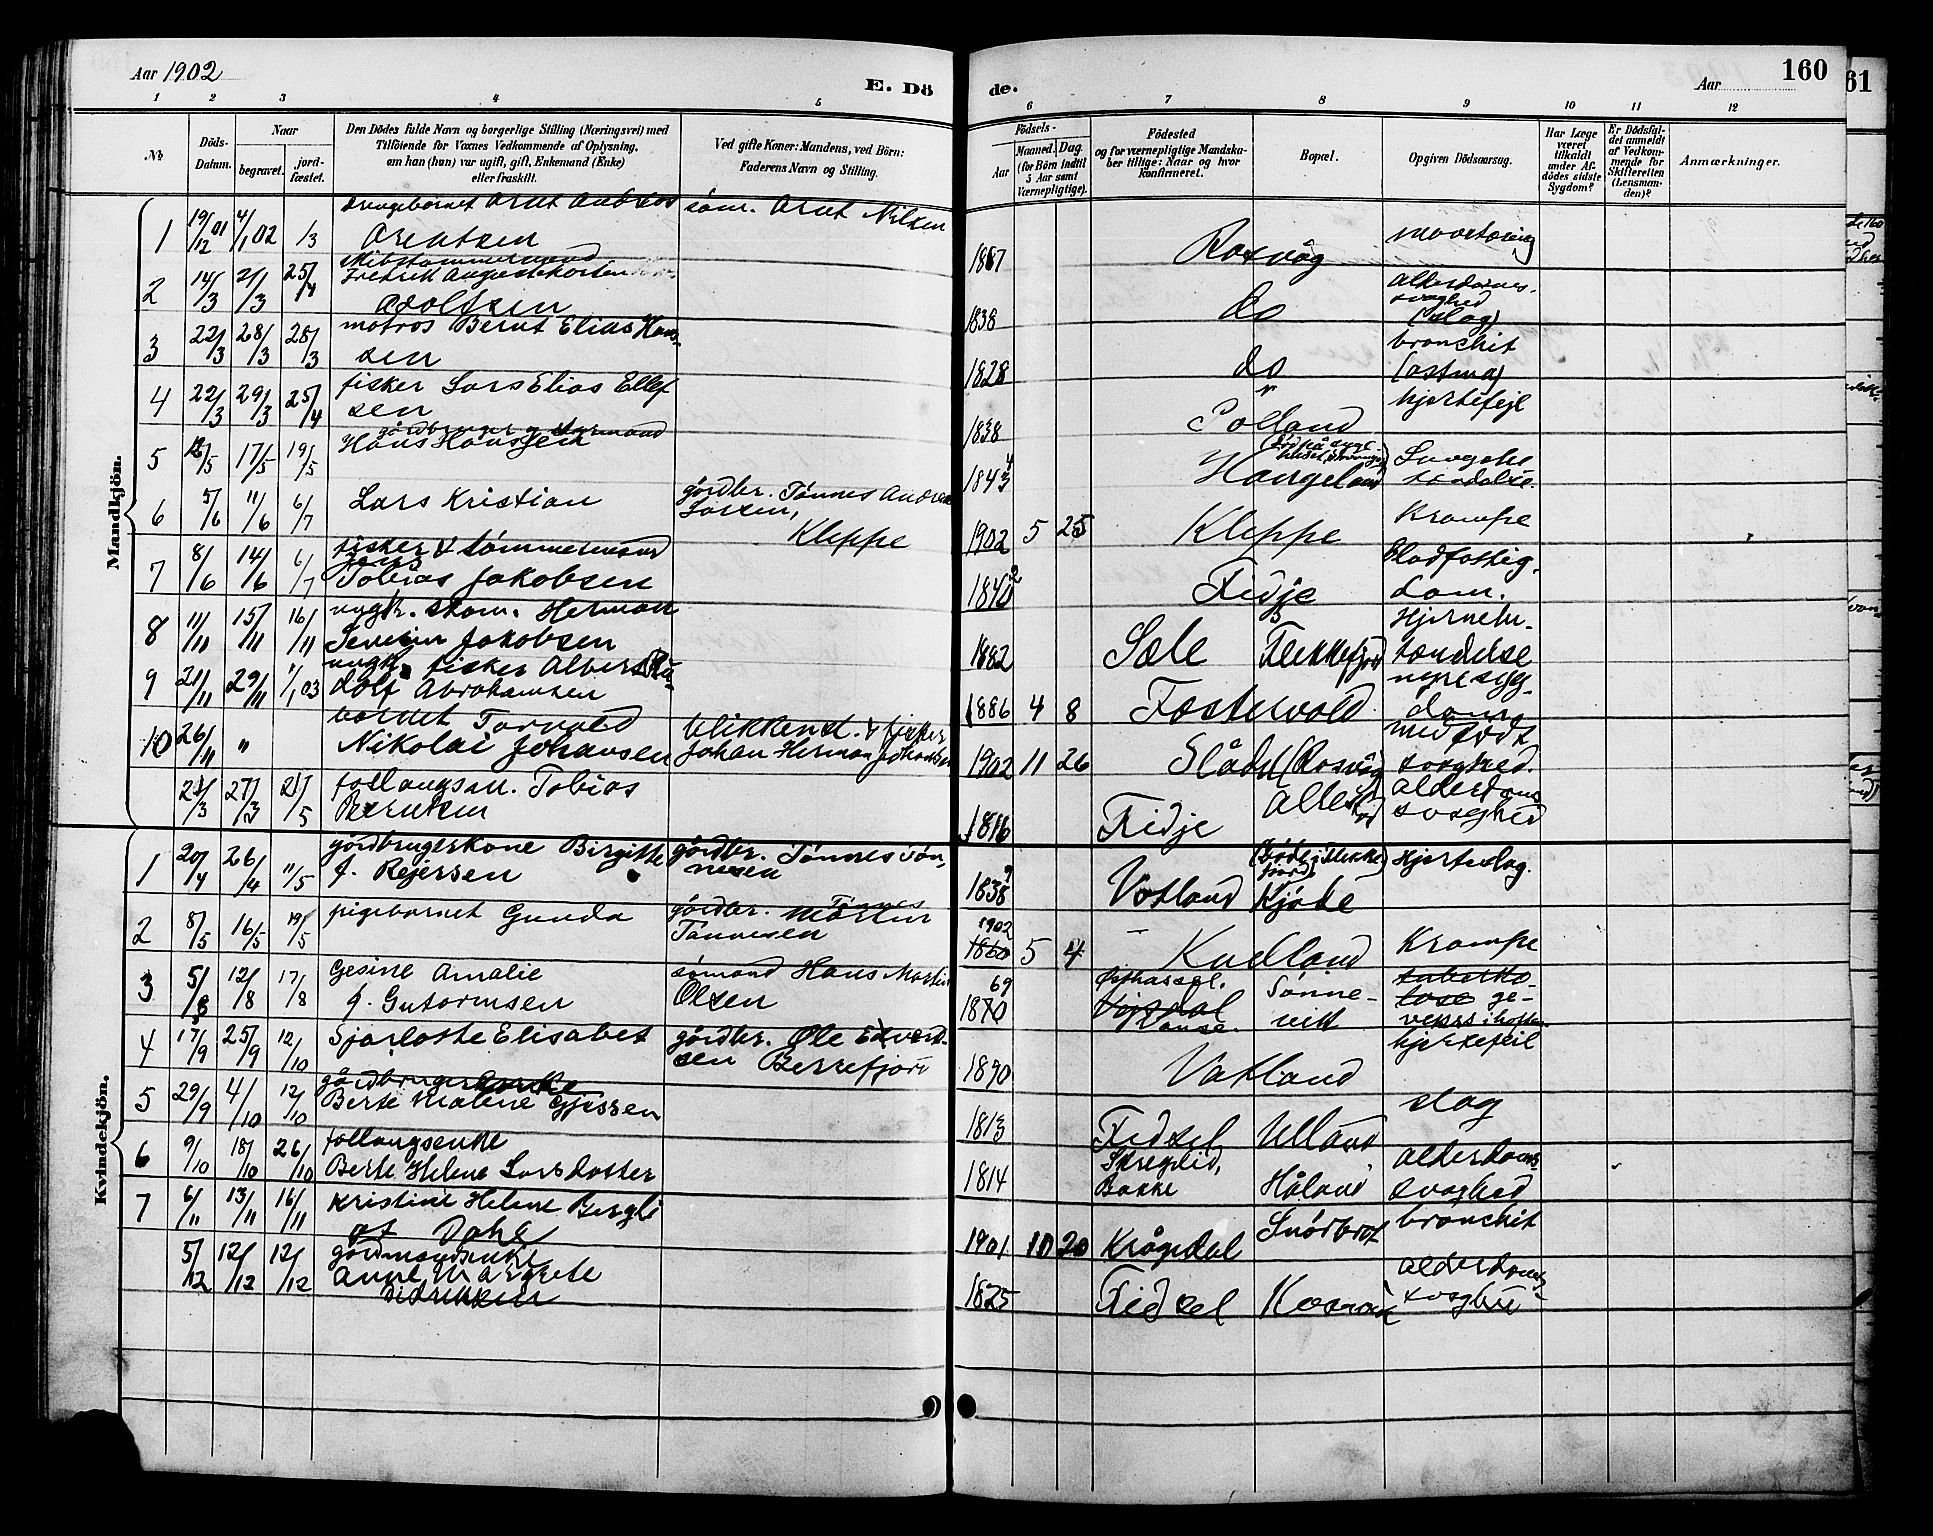 Aar 1902
E. Dö
de.
Aar
160
61
1 2 3 4 5 6 7 8 9 10 11 12
No.
Döds-Datum.
Naar
begravet.
jord-fæstet.
Den Dödes fulde Navn og borgerlige Stilling (Næringsvei) med
Tilföiende for Voxnes Vedkommende af Oplysning,
om han (hun) var ugift, gift, Enkemand (Enke)
eller fraskilt.
Ved gifte Koner: Mandens, ved Börn:
Faderens Navn og Stilling.
Födsels-
Aar
Maaned. Dag.
(for Börn indtil
5 Aar samt
Værnepligtige).
Födested
og for værnepligtige Mandska-
ber tillige: Naar og hvor
Konfirmeret.
Bopæl.
Opgiven Dödsaarsag.
Har Læge
været
tilkaldt
under Af-
dödes sidste
Sygdom?
Er Dödsfal-
det anmeldt
af Vedkom-
mende for
Skifteretten
(Lensman-
den)?
Anmærkninger.
Mandkjön.
1 19/12 01 4/1 02 1/3 drengebarnet Arnt Andreas Arentsen søm. Arnt Nilsen Rasvåg
2 14/3 21/3 25/4 Skibstømmermand Fredrik Adolfsen 1838 do alderdoms-svaghed (slag)
3 22/3 28/3 28/3 matros Bernt Elias Hansen 1828 do bronchit (astma)
4 22/3 29/3 25/4 fisker Lars Elias Ellefsen 1838 Polland hjertefejl
5 17/5 19/5 Hans Hansen 1843 Haugeland
6 5/6 11/6 6/7 Lars Kristian gårdbr. Tønnes Andreas Larsen, Kleppe 1902 5 25 Kleppe Krampe
7 8/6 14/6 6/7 fisker & tømmermand Jens Tobias Jakobsen 1840 Fidje Blodfattigdom.
8 11/11 15/11 16/11 ungk. skom. Herman Severin Jakobsen 1882 Sæle Flekkefjord Hjernebetændelse
9 21/11 29/11 1/1 03 ungk. fisker Albert Rudolf Abrahamsen 1886 4 8 Fostervold nyresygdom
10 26/11 " barnet Torvald Nikolai Johansen blikkensl. & fisker Johan Herman Johansen 1902 11 26 Slåde (Rasvåg) medfødt svaghed.
27/3 21/5 follaugsm. Tobias Berntsen 1816 Fidje alderdomssvaghed
Kvindekjön.
1 20/4 26/4 11/5 gårdbrugerkone Birgitte f. Rejersen gårdbr. Tønnes Tønnesen 1838 Vatland (Døde i Flekkefjord) Hjerteslag.
2 8/5 16/5 19/5 pigebarnet Gunda gårdbr. Tønnes Martin Tønnesen 1902 1860 5 4 Kvelland Krampe
3 5/8 12/8 17/8 Gesine Amalie f. Gutormsen sømand Hans Martin Olsen 69 1870 Østhassel. Sønnevik tuberkulose
4 17/9 25/9 12/10 Sjarlotte Elisabet gårdbr. Ole Edvardsen Berrefjord 1890 Vatland hjertefeil
5 29/9 4/10 12/10 gårdbrugerenke Berte Malene Gjersen 1813 Fidsel Ulland slag
6 9/10 18/10 26/10 follaugsenke Berte Helene Larsdatter 1814 Skreglid, Bakke Håland alderdomssvaghed
7 6/11 13/11 16/11 Kristine Helene Bergli af Dahl 1901 10 20 Krågedal Snørbrot bronchit
5/12 12/12 12/12 gårdmandsenke Anne Margrete Didriksen 1825 Fidsel alderdomssvaghed